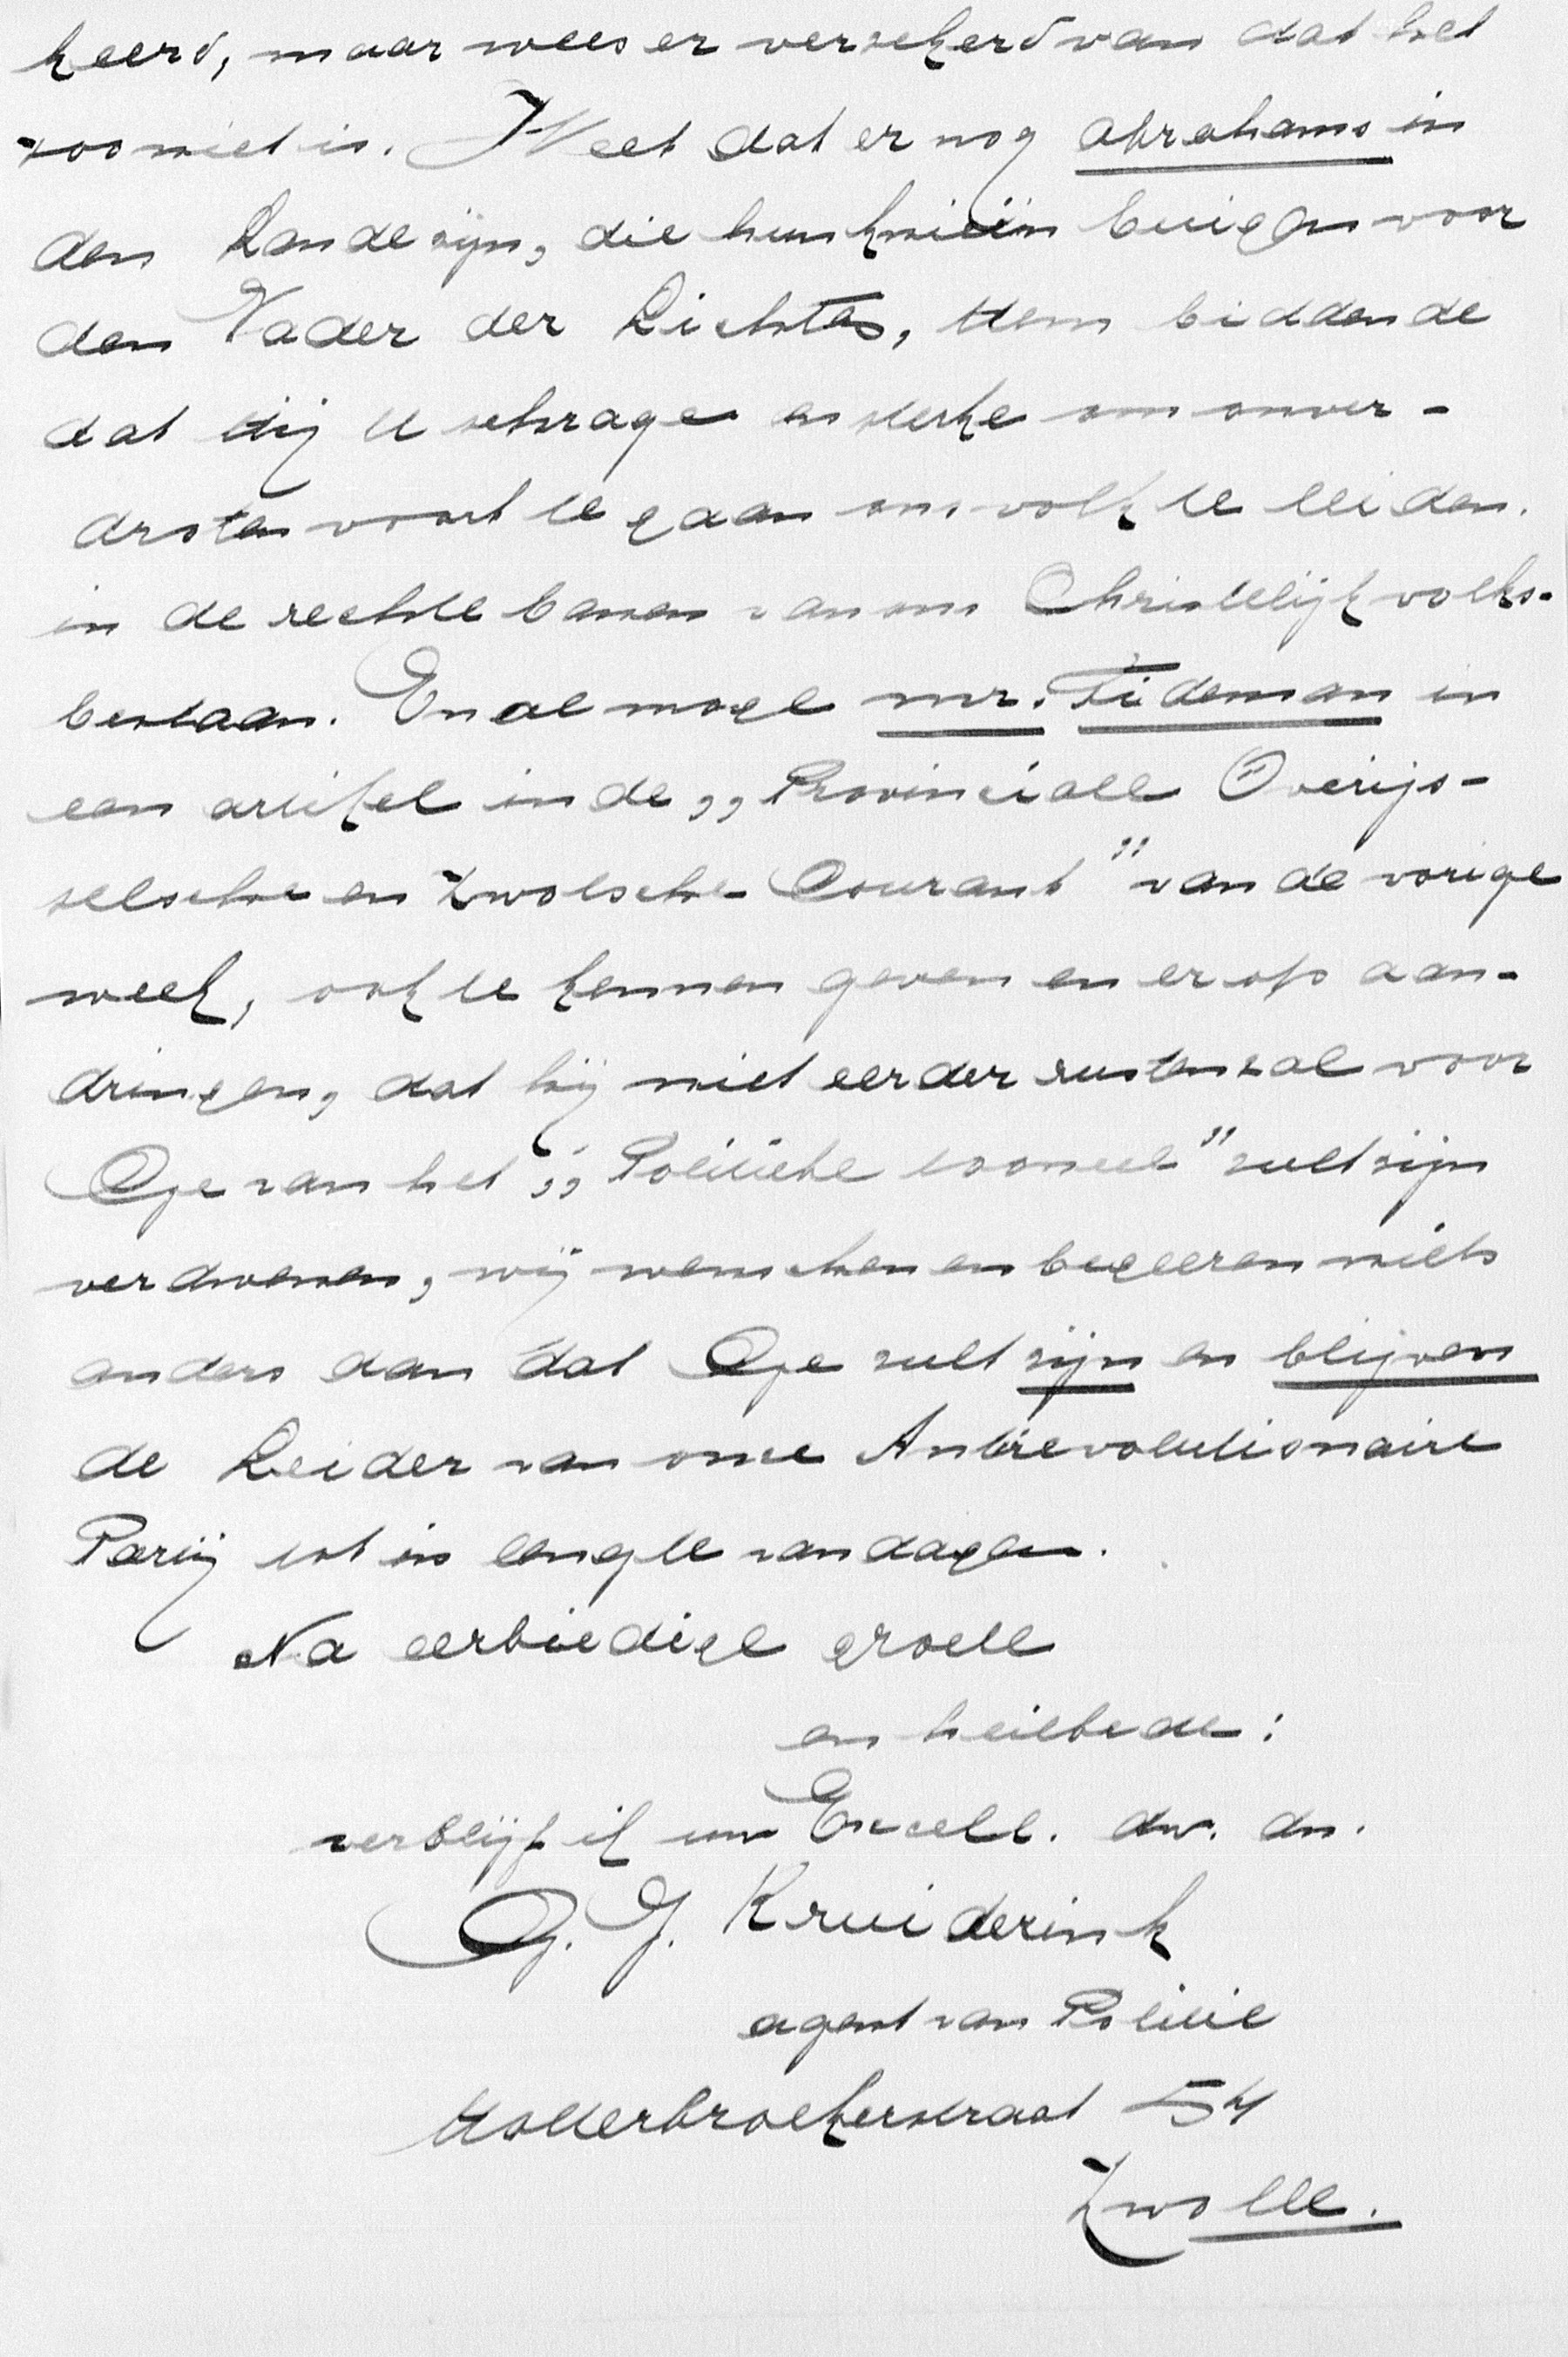 keerd, maar wees er verzekerd van dat het
zoo niet is. Weet dat er nog Abrahams in
den Lande zijn, die hun knieën buigen voor
den Vader der Lichten, Hem biddende
dat Hij U schrage en sterke om onver-
droten voort te gaan ons volk te leiden.
in de rechte banen van ons Christelijk volks-
bestaan. En al moge mr. Tideman in
een artikel in de „Provinciale Overijs-
selsche en Zwolsche Courant" van de vorige
week, ook te kennen geven en er op aan-
dringen, dat hij niet eerder rusten zal voor
Gge van het „Politieke tooneel" zult zijn
verdwenen, wij wenschen en begeeren niets
anders dan dat Gge zult zijn en blijven
de Leider van onze Antirevolutionaire
Partij tot in lengte van dagen.
Na eerbiedige groete
en heilbede:
verblijf ik uw Excell. dw. dn.
G. J. Kruiderink
agent van Politie
Holterbroekerstraat 54
Zwolle.